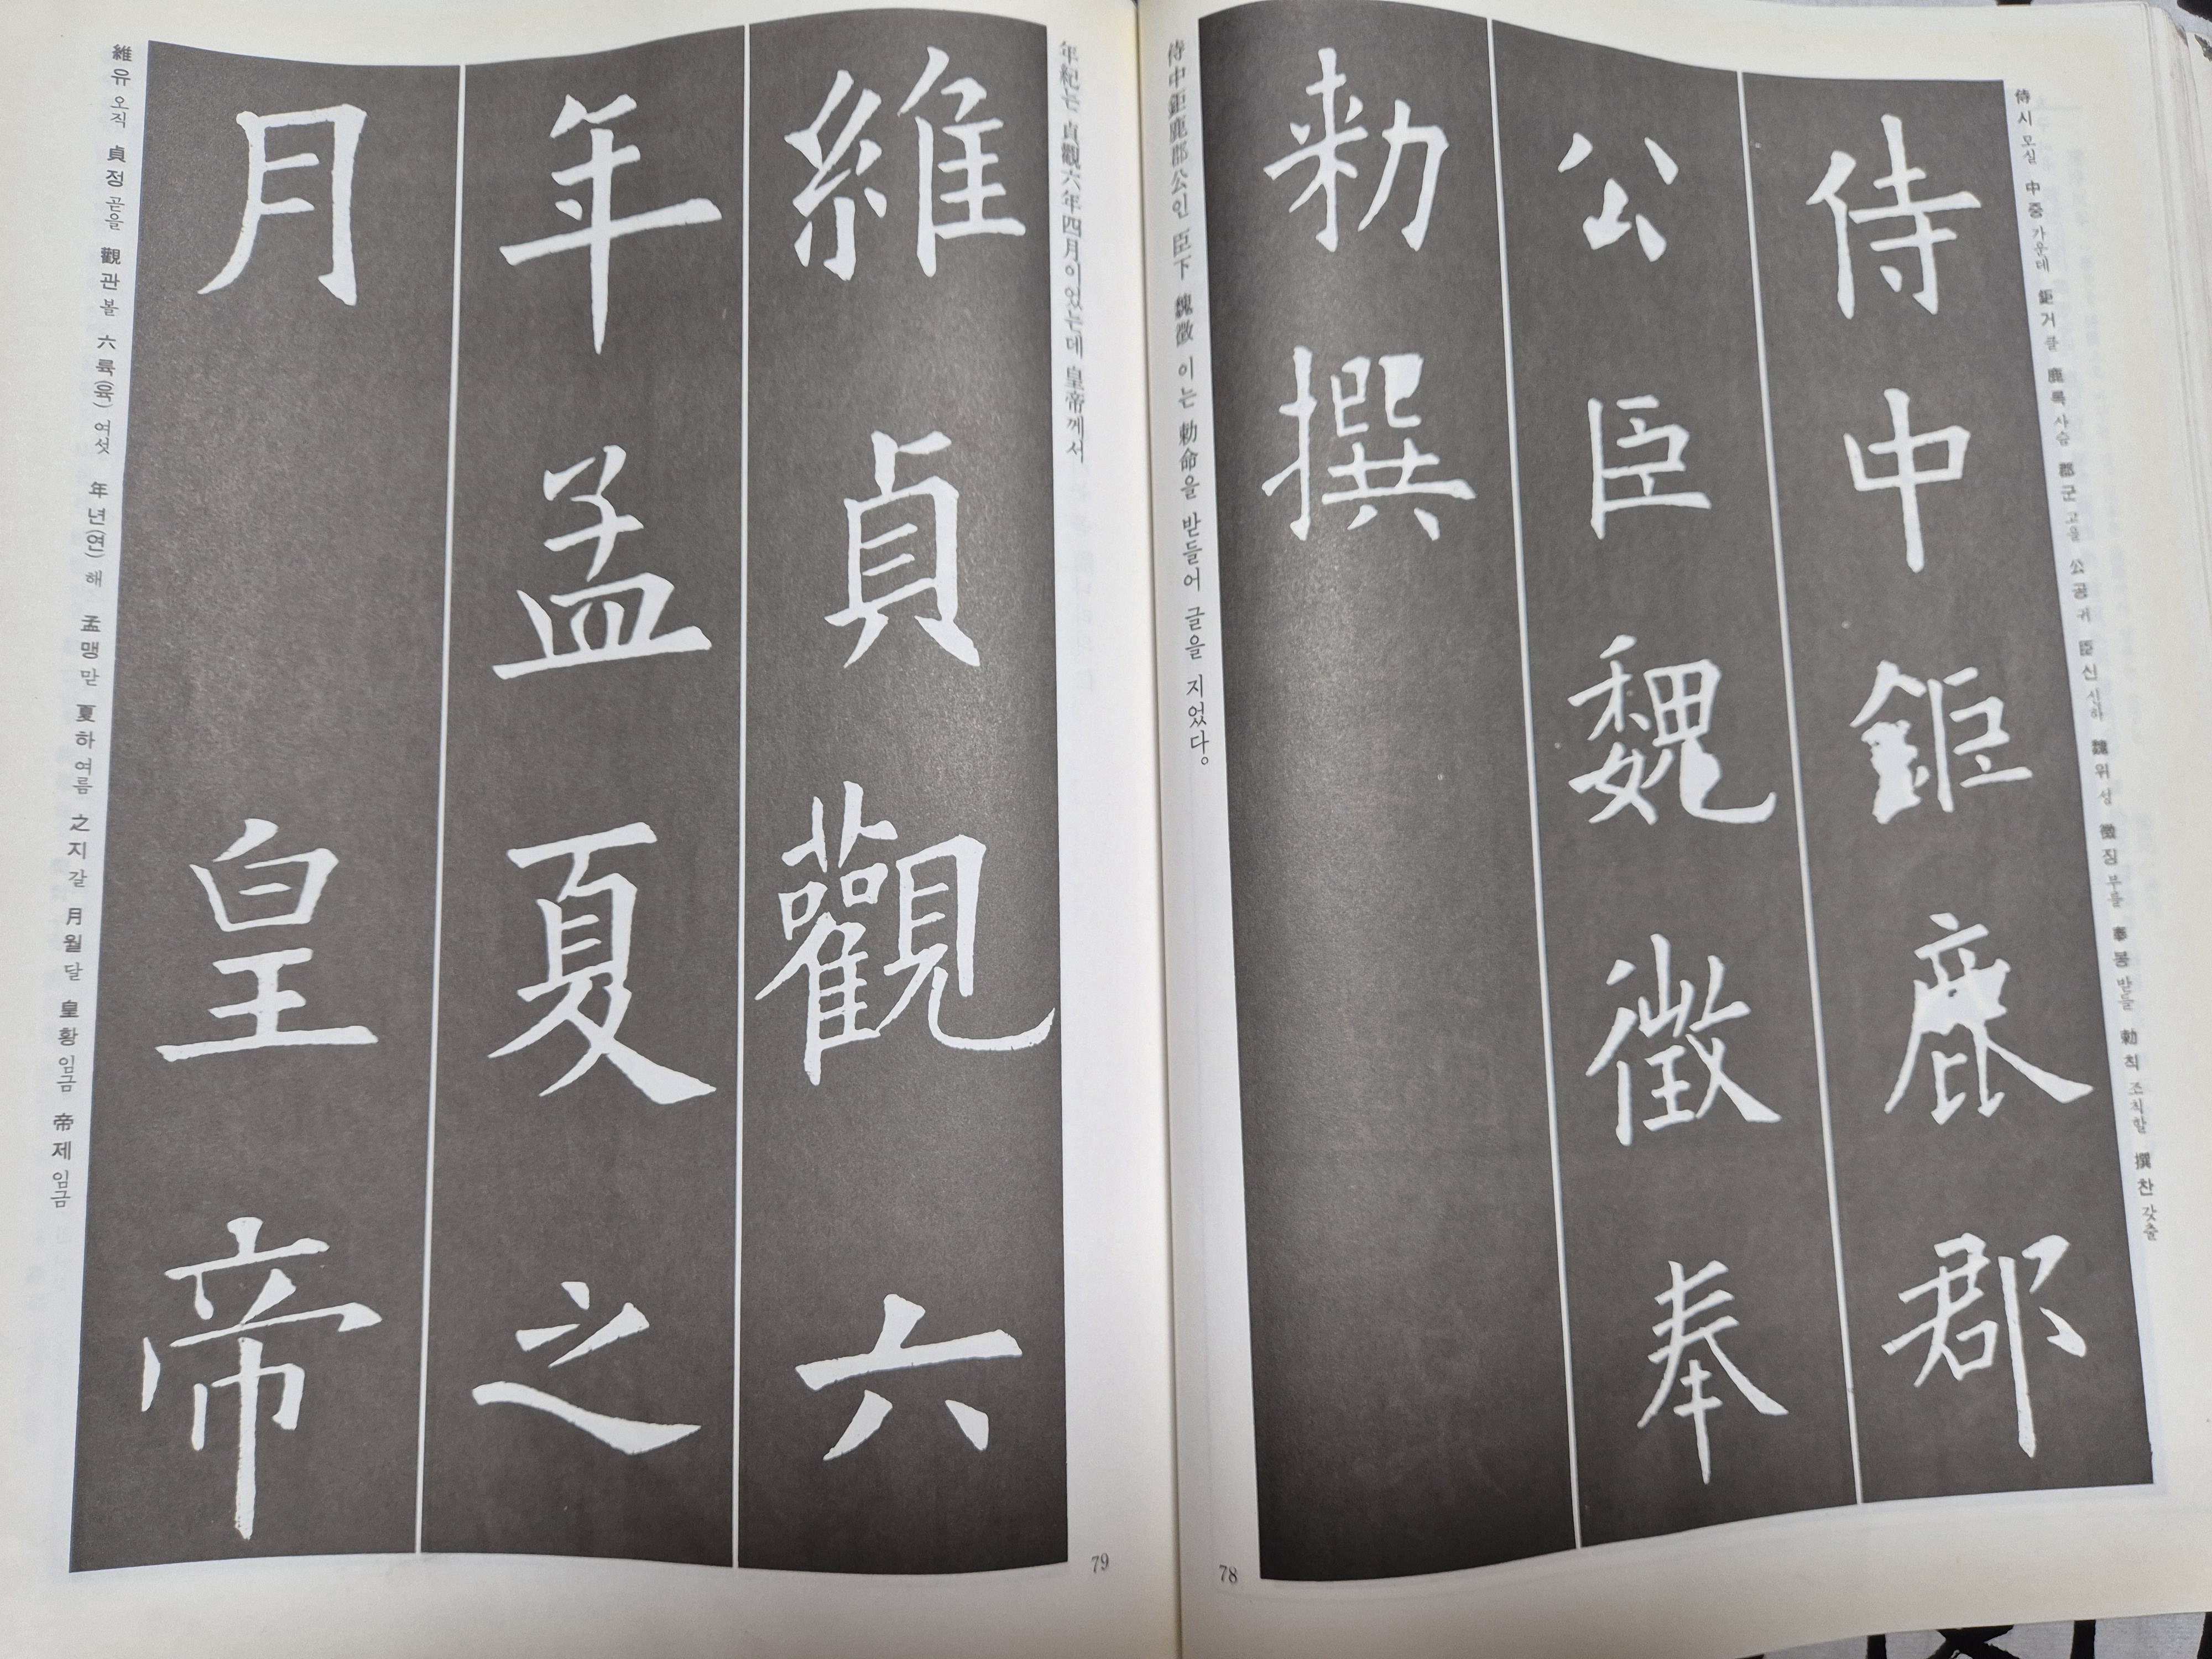 侍시모실 中중가운데 鉅거클 鹿록사슴 郡군고을 公공귀 臣신신하 魏위성 徵징부를 奉봉받들 勅칙조칙할 撰찬갖출
侍中鉅鹿郡
公臣魏徵奉
勅撰
侍中鉅鹿郡公인 臣下 魏徵이는 勅命을 받들어 글을 지었다。
78
年紀는 貞觀六年四月이었는데 皇帝께서
維貞觀六
年孟夏之
月 皇帝
維유오직 貞정곧을 觀관볼 六륙(육)여섯 年년(연)해 孟맹맏 夏하여름 之지갈 月월달 皇황임금 帝제임금
79